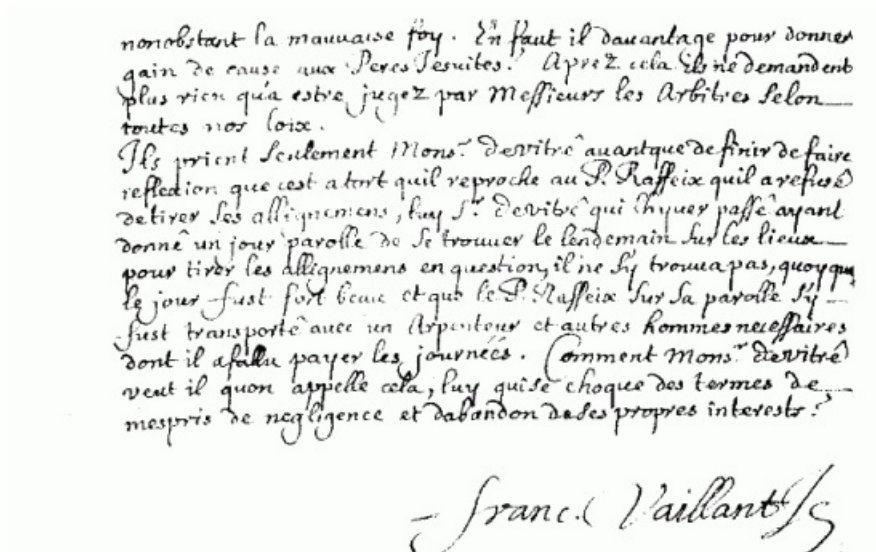 nonobstant la mauuaise foy. En faut il dauantage pour donner
gain de cause aux Peres Jesuites? Aprez cela ils ne demandent
plus rien qu'a estre jugez par Messieurs les Arbitres selon
toutes nos loix.
Ils prient seulement Mons.r devitré auantque definir de faire
reflexion que cest atort quil reproche au P. Raffeix quil a refusé
detirer les allignemens, luy S.r devitré qui lhyuer passé ayant
donné un jour parolle de se trouuer le lendemain sur les lieux
pour tirer les allignemens en question, il ne sy trouua pas, quoyque
le jour fust fort beau et que le P. Raffeix sur sa parolle sy
fust transporté auec un Arpenteur et autres hommes necessaires
dont il afallu payer les journées. Comment Mons.r devitré
veut il quon appelle cela, luy quise choque des termes de
mespris de negligence et dabandon deses propres interests?
franc. Vaillant